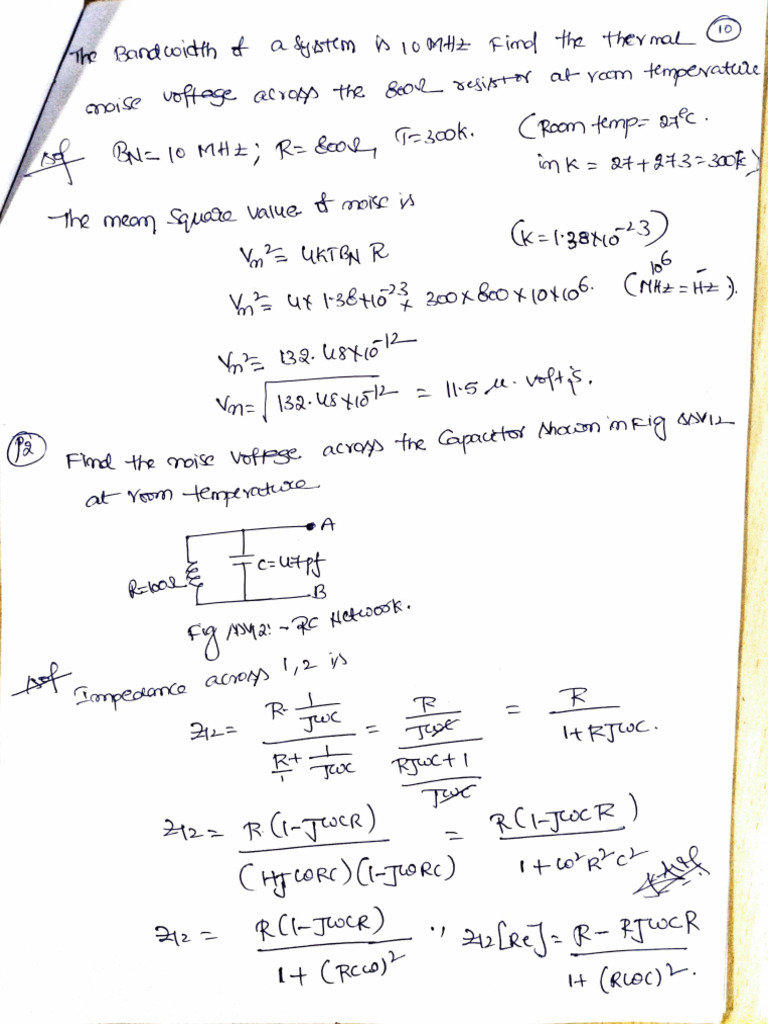 10
The Bandwidth of a system is 10 MHz Find the thermal
noise voltage across the 800Ω resistor at room temperature
Sol BN = 10 MHz; R = 800Ω, T = 300k. (Room temp = 27°C.
in K = 27 + 273 = 300K)
The mean square value of noise is
Vn² = 4KTBN R (K = 1.38×10⁻²³)
Vn² = 4 × 1.38×10⁻²³ × 300 × 800 × 10 × 10⁶. (MHz = 10⁶ Hz).
Vn² = 132.48×10⁻¹²
Vn = √132.48×10⁻¹² = 11.5 μ. volts.
P2 Find the noise voltage across the Capacitor shown in Fig
at room temperature
A
R=100Ω C=47pf
B
Fig :- RC Network.
Sol Impedance across 1,2 is
Z12 = (R · 1/Jωc) / (R/1 + 1/Jωc) = (R/Jωc) / ((RJωc + 1)/Jωc) = R / (1 + RJωc).
Z12 = R·(1-JωCR) / (1+JωRC)(1-JωRC) = R(1-JωCR) / (1 + ω²R²C²)
Z12 = R(1-JωCR) / (1 + (RCω)²) ∵ Z12[Re] = (R - RJωCR) / (1 + (RωC)²).